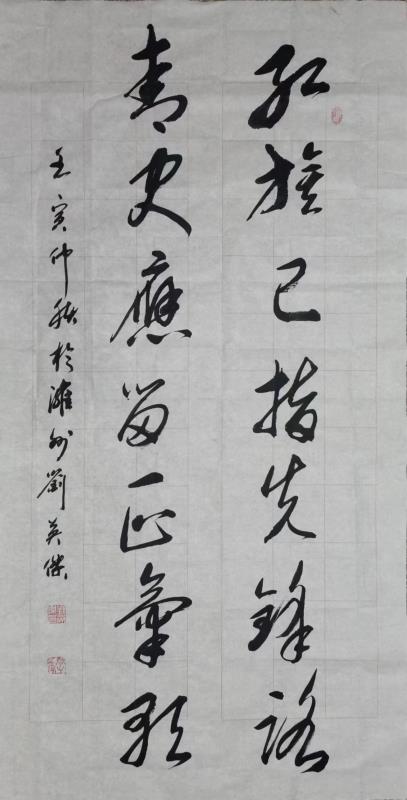 红旗已指先锋路
青史應留正氣歌
壬寅仲秋於潍州劉英傑